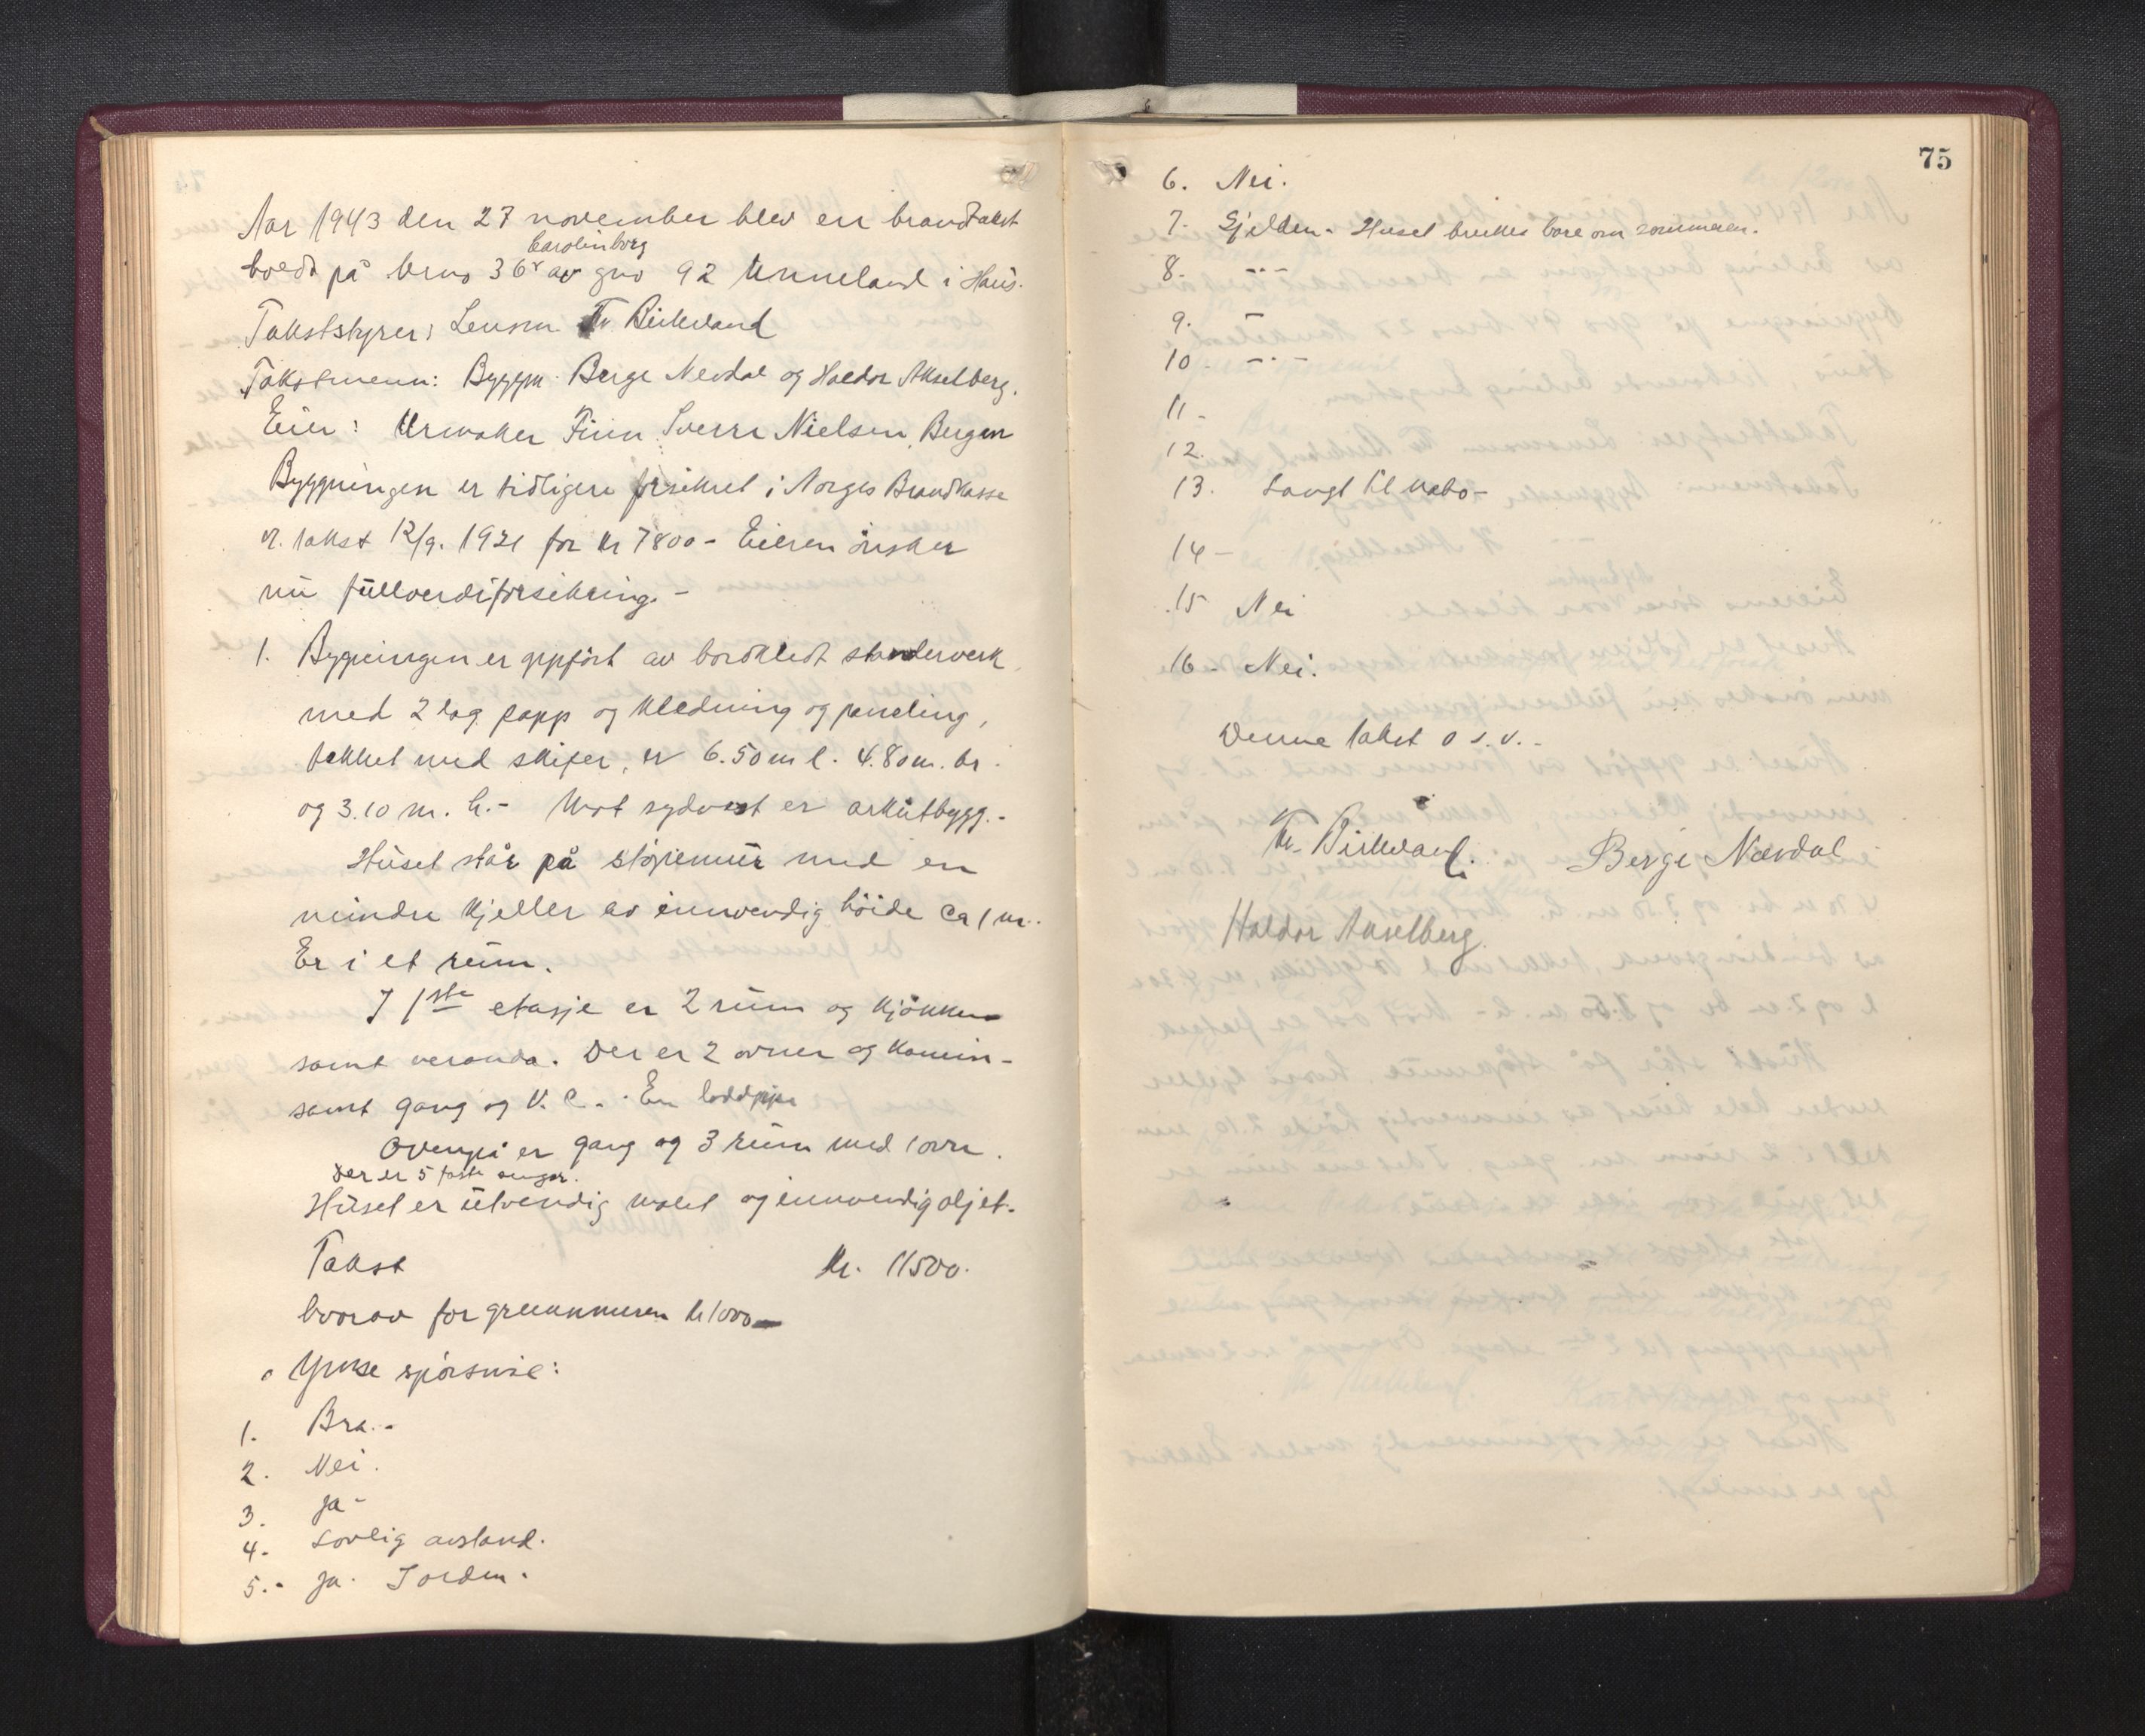 Aar 1943 den 27 november blev en brandtakst
Carolinborg
holdt på brno 36 av gno 92 Unneland i Haus.
Takststyrer: Lensm Tr. Birkeland
Takstmenn: Byggm. Berge Nævdal og Haldor Akselberg.
Eier: Urmaker Finn Sverre Nielsen, Bergen
Byggningen er tidligere forsikret i Norges Brandkasse
v. takst 12/9. 1921 for kr 7800 - Eieren ønsker
nu fullverdiforsikring. -
1. Bygningen er oppført av bordkledt standerverk
med 2 lag papp og kledning og paneling,
tekket med skifer, er 6.50 m l. 4.80 m. br.
og 3.10 m. h. - Mot sydvest er arkutbygg. -
Huset står på støpemur med en
mindre kjeller av innvendig høide ca 1 m.
Er i et rum.
I 1ste etasje er 2 rum og kjøkken
samt veranda. Der er 2 ovner og kamin -
samt gang og V. C. - En loddpipe
Ovenpå er gang og 3 rum med 1 ovn.
Der er 5 faste senger.
Huset er utvendig malt og innvendig oljet.
Takst kr. 11500.
hvorav for grunnmuren kr 1000 -
Ymse spørsmål:
1. Bra. -
2. Nei.
3. Ja -
4. Lovlig avstand.
5. - Ja. Jorden.
75
6. Nei.
7. Sjelden. Huset brukes bare om sommeren.
8. - - -
9. -
10 - - -
11 -
12.
13. Langt til nabo -
14 -
15 Nei
16 - Nei.
Denne takst o s. v. -
Tr. Birkeland. Berge Nævdal
Haldor Akselberg.